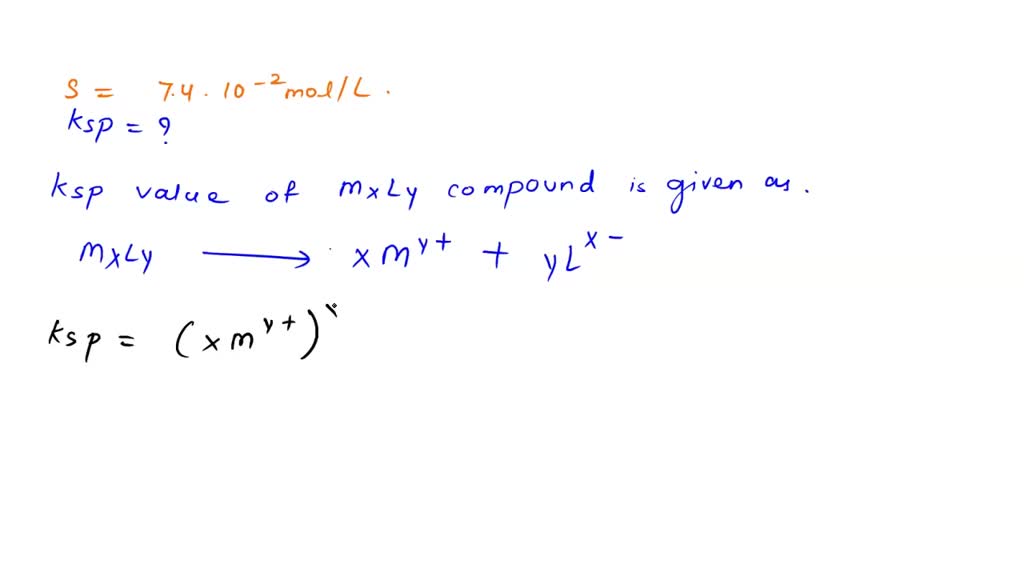 S = 7.4 . 10⁻² mol/L .
Ksp = ?
Ksp value of MxLy compound is given as.
MxLy ⟶ x M^y+ + y L^x-
Ksp = (x M^y+)^x